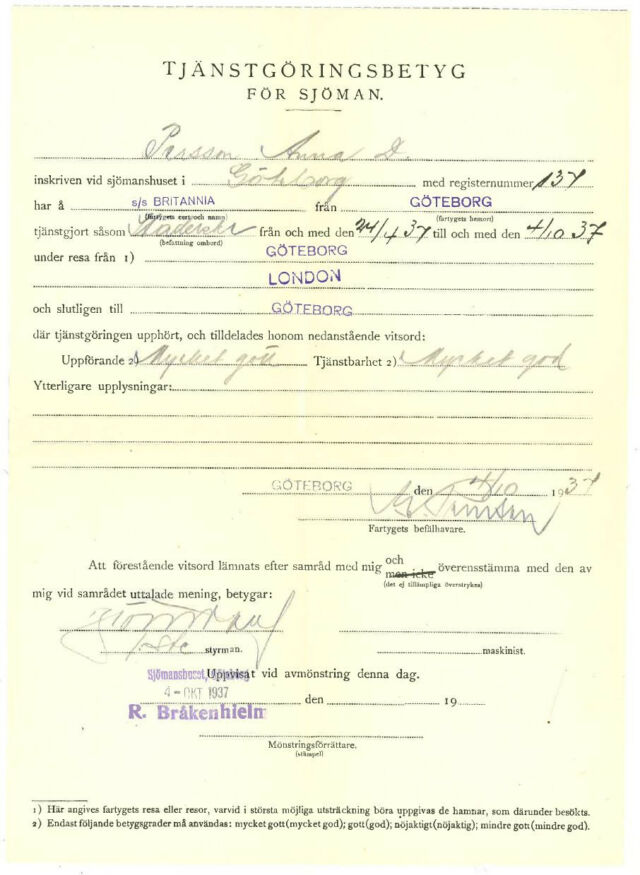 TJÄNSTGÖRINGSBETYG
FÖR SJÖMAN.
Persson Anna D.
inskriven vid sjömanshuset i Göteborg med registernummer 137
har å s/s BRITANNIA från GÖTEBORG
(fartygets art och namn) (fartygets hemort)
tjänstgjort såsom från och med den 24/4 37 till och med den 4/10 37
(befattning ombord)
under resa från 1) GÖTEBORG
LONDON
och slutligen till GÖTEBORG
där tjänstgöringen upphört, och tilldelades honom nedanstående vitsord:
Uppförande 2) Mycket gott Tjänstbarhet 2) Mycket god
Ytterligare upplysningar:
GÖTEBORG den 4/10 1937
Fartygets befälhavare.
Att förestående vitsord lämnats efter samråd med mig och men icke överensstämma med den av
(det ej tillämpliga överstrykes)
mig vid samrådet uttalade mening, betygar:
1ste styrman. maskinist.
Sjömanshuset, Göteborg Uppvisat vid avmönstring denna dag.
4 - OKT 1937 den 19
R. Bråkenhielm
Mönstringsförrättare.
(stämpel)
1) Här angives fartygets resa eller resor, varvid i största möjliga utsträckning böra uppgivas de hamnar, som därunder besökts.
2) Endast följande betygsgrader må användas: mycket gott (mycket god); gott (god); nöjaktigt (nöjaktig); mindre gott (mindre god).